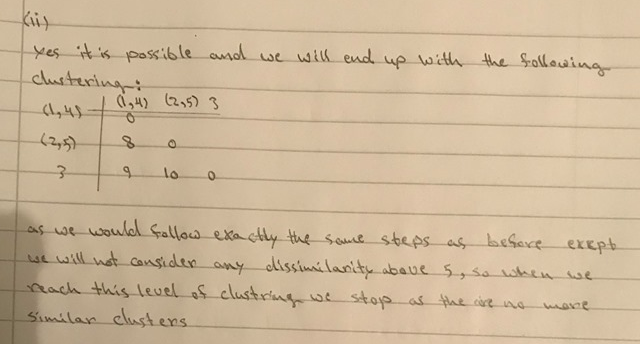 (ii)
Yes it is possible and we will end up with the following
clustering:
(1,4) (2,5) 3
(1,4) 0
(2,5) 8 0
3 9 10 0
as we would follow exactly the same steps as before except
we will not consider any dissimilarity above 5, so when we
reach this level of clustring we stop as the are no more
similar clusters